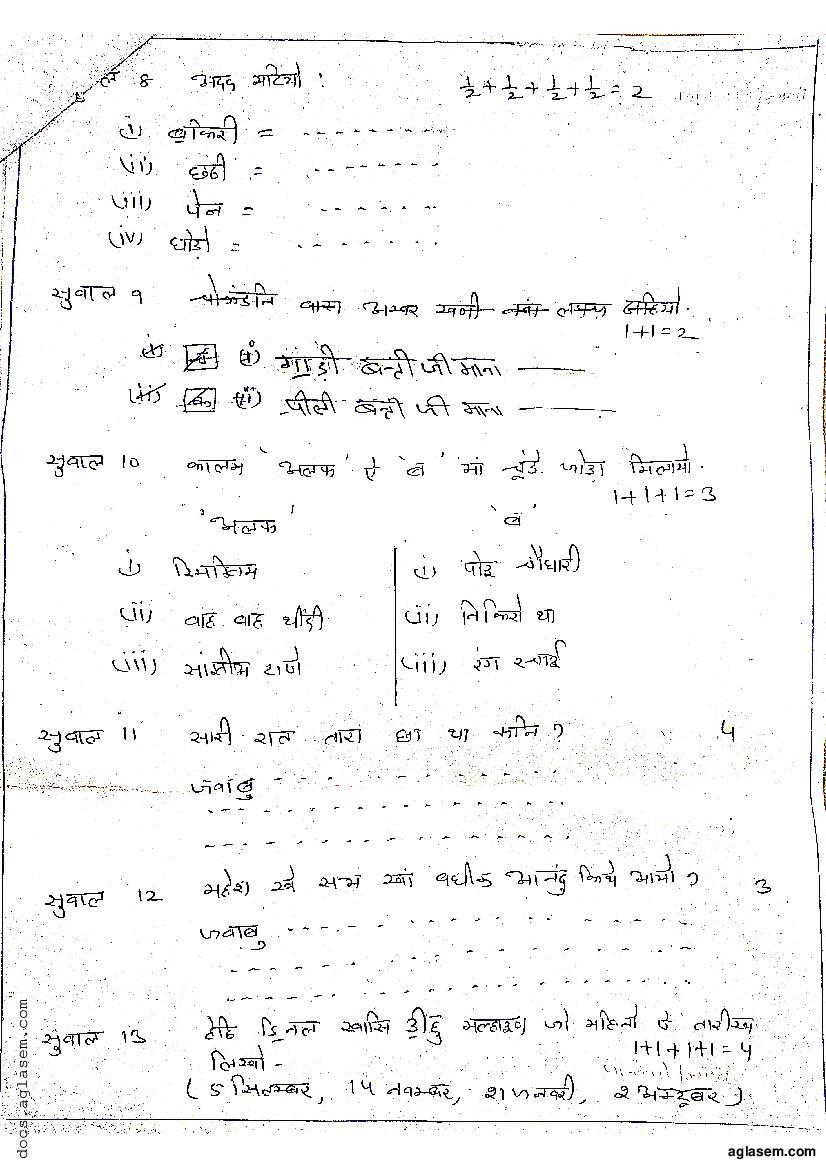 ल 8 अदद मटियो : ½+½+½+½=2
(i) ब॒किरी = - - - - - - - -
(ii) छठी = - - - - - - -
(iii) पेन = - - - - - -
(iv) घोड़ो = - - - - - -
सुवाल 9 वारा अखर
1+1=2
(i) गाड़ी बत्ती जी माना ———
(ii) पीली बत्ती जी माना ———
सुवाल 10 कालम 'अलफ' ऐं 'ब' मां चूंडे जोड़ा मिलायो.
1+1+1=3
'अलफ' 'ब'
i) रिमझिम i) पोइ चौधारी
(ii) वाह वाह थींदी (ii) निकिरी था
(iii) (iii) रंग रचाई
सुवाल 11 सारी रात तारा छा था कनि ? 4
जवाबु - - - - - - - -
सुवाल 12 महेश खे सभ खां वधीक आनंदु किथे आयो ? 3
जवाबु - - - - - - - -
सुवाल 13 हेठि ड॒िनल खासि ड॒ींहुं मल्हाइण जो महिनो ऐं तारीख
लिखो - 1+1+1+1=4
(5 सितम्बर, 14 नवम्बर, 21 जनवरी, 2 अक्टूबर)
docs.aglasem.com
aglasem.com